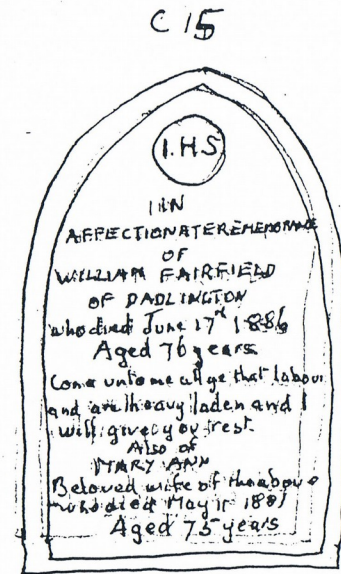 C 15
I.H.S
IN
AFFECTIONATE REMEMBRANCE
OF
WILLIAM FAIRFIELD
OF DADLINGTON
who died June 17th 1886
Aged 76 years
Come unto me all ye that labour
and are heavy laden and I
will give you rest.
Also of
MARY ANN
Beloved wife of the above
who died May 11 1881
Aged 75 years